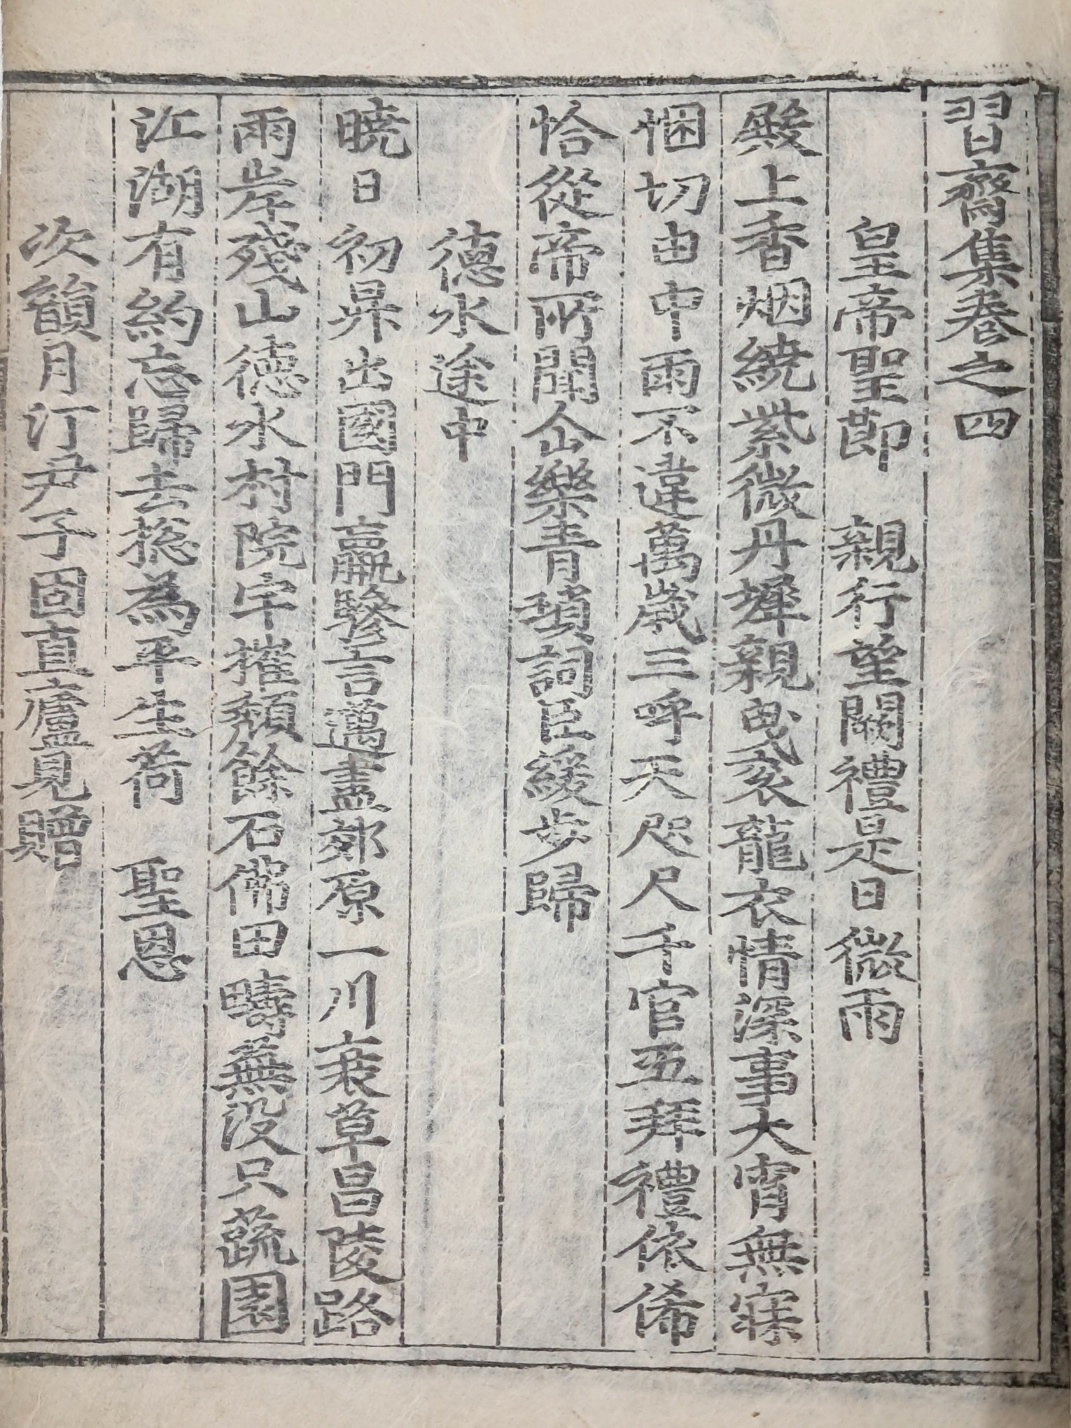 習齋集卷之四
皇帝聖節 親行望闕禮是日微雨
殿上香烟繞紫微丹墀親曳袞龍衣情深事大宵無寐
悃切由中雨不違萬歲三呼天咫尺千官五拜禮依俙
恰從帝所聞仙樂青瑣詞臣緩步歸
德水途中
曉日初昇出國門羸驂言邁盡郊原一川衰草昌陵路
兩岸殘山德水村院宇摧頹餘石佛田疇蕪没只蔬園
江湖有約忘歸去摠為平生荷 聖恩
次韻月汀尹子固直廬見贈